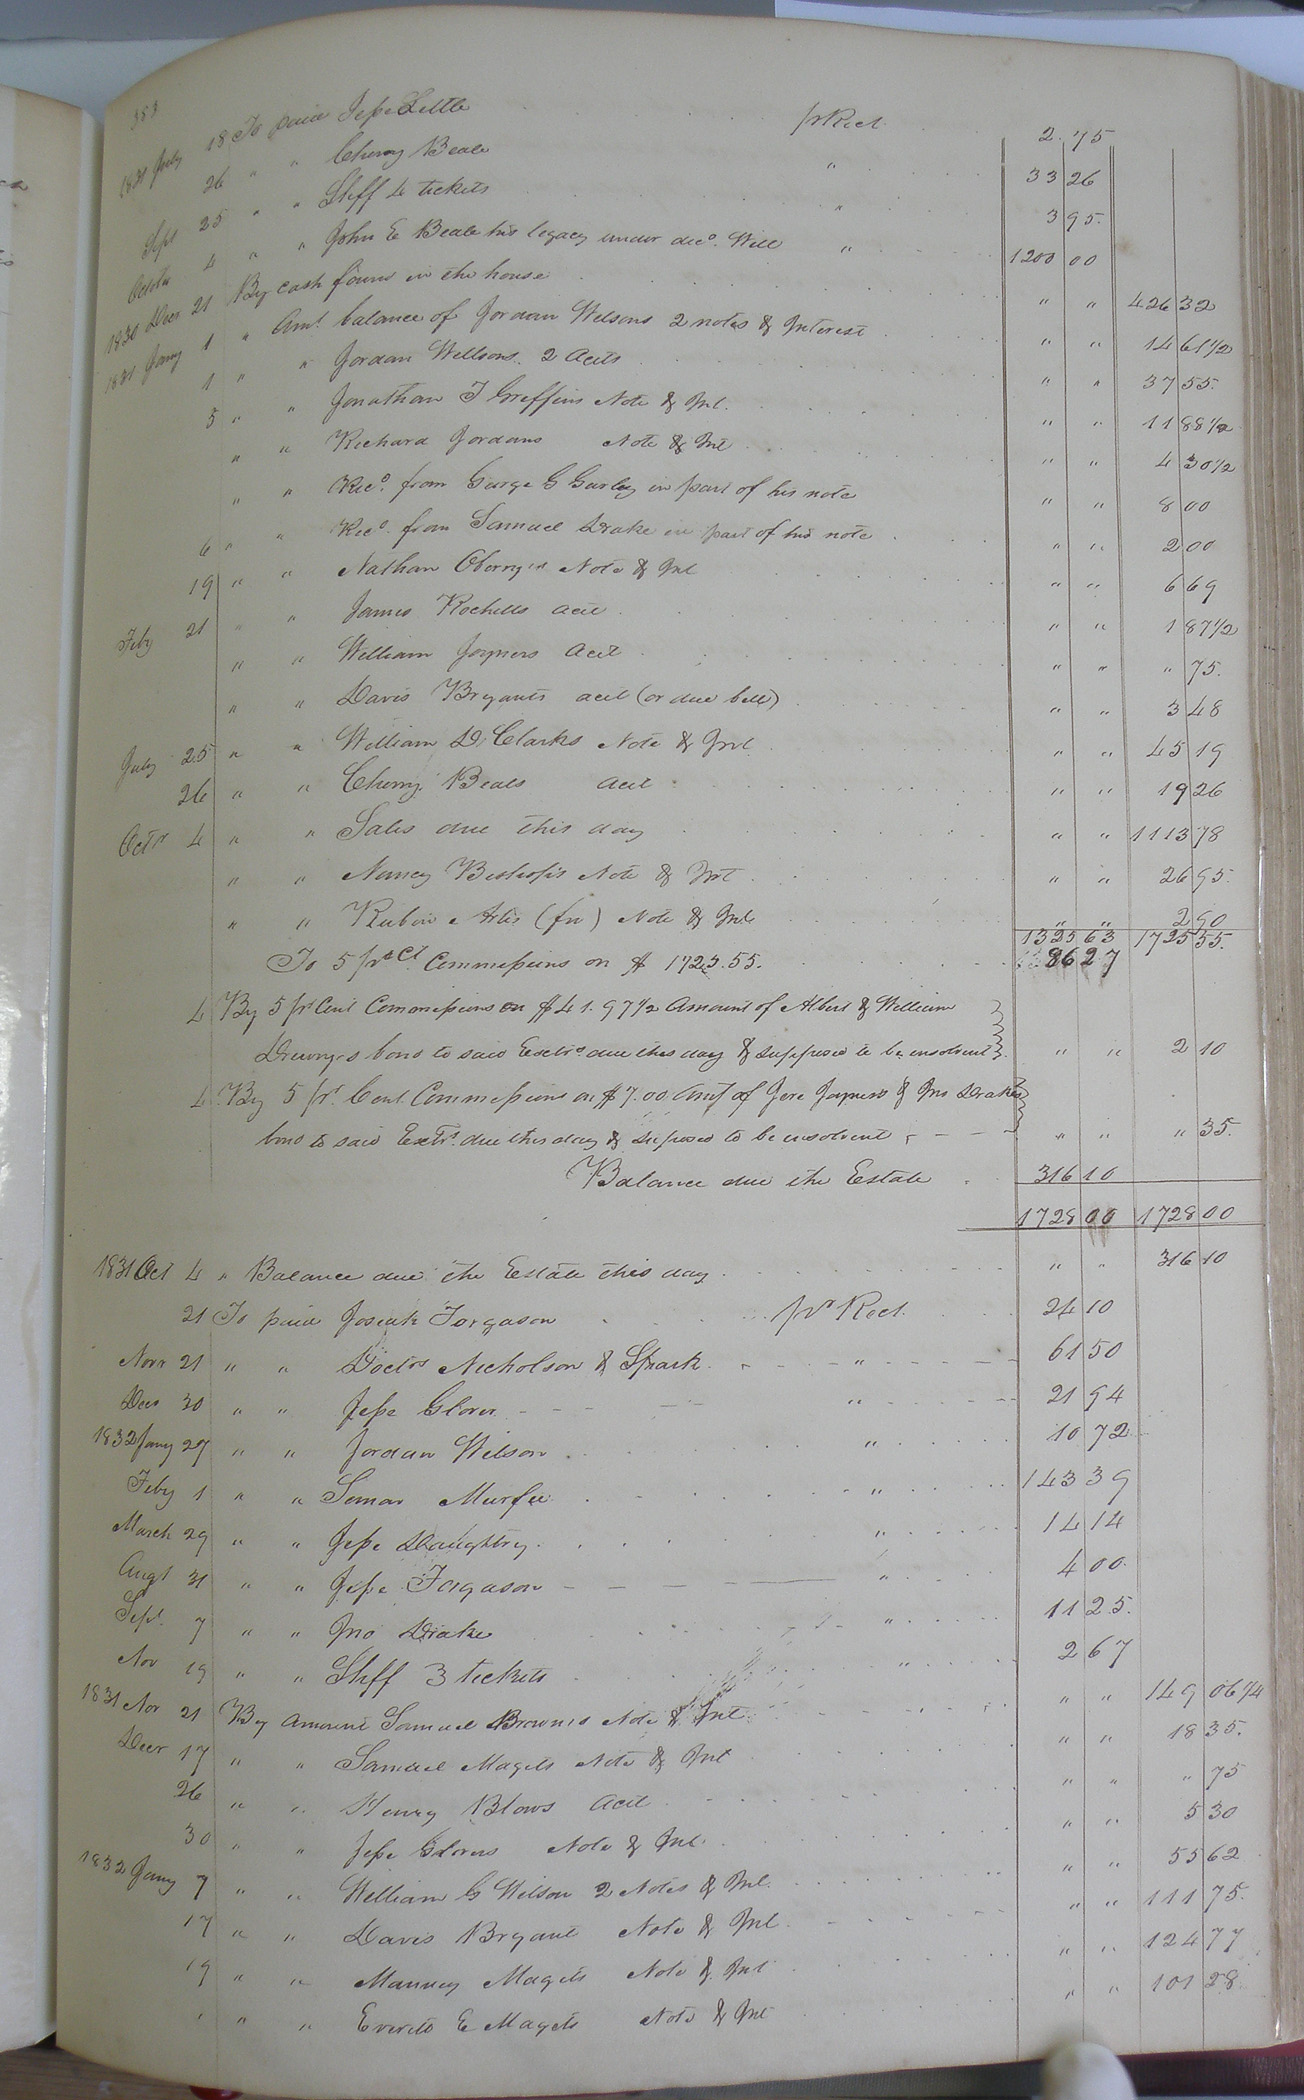 383
1831 July 18 To paid Jesse Little pr Rect. 2.75
26 " " Cherry Beale " 33 26
Sept 25 " " Shff 4 tickets " 3 95.
Octobr 4 " " John E Beale his legacy under decd. Will " 1200 00
1830 Decr 21 By cash found in the house " " 426 32
1831 Jany 1 " Amt. balance of Jordan Wilsons 2 notes & Interest " " 14 61 1/2
1 " " Jordan Willsons. 2 Accts " " 37 55.
5 " " Jonathan T Griffins Note & Int. " " 11 88 1/2
" " Richard Jordans Note & Int " " 4 30 1/2
" " Recd. from George G Gurley in part of his note " " 8 00
6 " " Recd. from Samuel Drake in part of his note " " 2 00
19 " " Nathan Oberry's Note & Int " " 6 69
Feby 21 " " James Rochells acct " " 1 87 1/2
" " William Joyners Acct " " " 75.
" " Davis Bryants acct (or due bill) " " 3 48
July 25 " " William D. Clarks Note & Int " " 45 19
26 " " Cherry Beals acct " " 19 26
Octr 4 " " Sales due this day " " 1113 78
" " Nancy Bishops Note & Int " " 26 95.
" " Reubin Artis (fn) Note & Int " " 2 90
1325 63 1725 55.
To 5 pr Ct. Commissions on $ 1725.55. 86 27
4 By 5 pr Cent Commissions on $41.97 1/2 Amount of Albert & William
Drewrys bond to said Exetr due this day & supposed to be insolvent " " 2 10
4 By 5 pr. Cent. Commissions on $7.00 Amt of Jere Joyners & Jno Drakes
bond to said Extr. due this day & suposed to be insolvent " " " 35.
Balance due the Estate 316 10
1728 00 1728 00
1831 Oct 4 " Balance due the Estate this day " " 316 10
21 To paid Josiah Forgason pr Rect. 24 10
Novr 21 " " Doctor Nicholson & Spark " 61 50
Decr 30 " " Jesse Glover " 21 94
1832 Jany 27 " " Jordan Wilson " 10 72
Feby 1 " " Simon Murfee " 143 39
March 29 " " Jesse Daughtry " 14 14
Augt 31 " " Jesse Forgason " 4 00.
Sept. 7 " " Jno Drake " 11 25.
Nov 19 " " Shff 3 tickets " 2 67
1831 Nov 21 By Amount Samuel Browns Note & Int " " 149 06 1/4
Decr 17 " " Samuel Magets Note & Int " " 18 35.
26 " " Henry Blows Acct " " " 75
30 " " Jesse Glovers Note & Int. " " 5 30
1832 Jany 7 " " William G Wilson 2 Notes & Int. " " 55 62
17 " " Davis Bryant Note & Int " " 111 75.
19 " " Manney Magets Note & Int " " 124 77
" " " Everett E Magets Note & Int " " 101 28